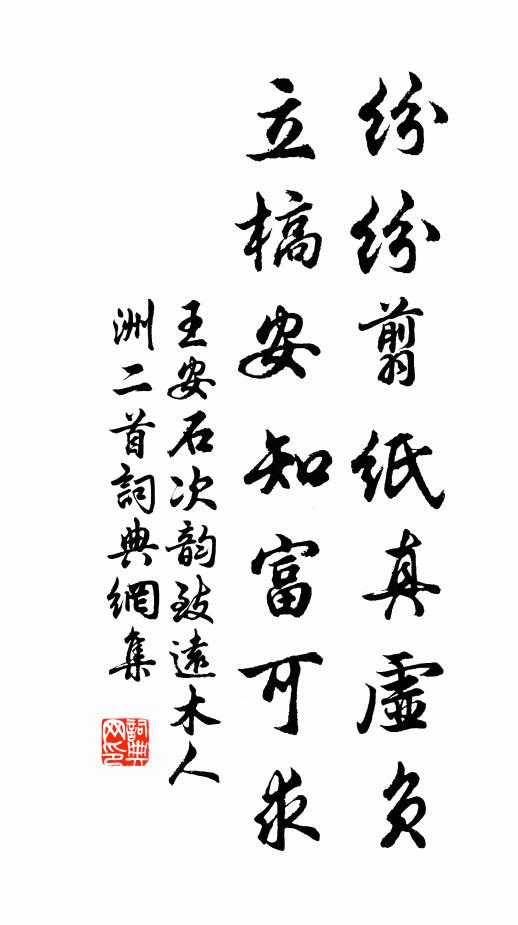 纷纷翦纸真虚负
立槁安知富可求
王安石次韵致远木人
洲二首詞典網集
詞典网印